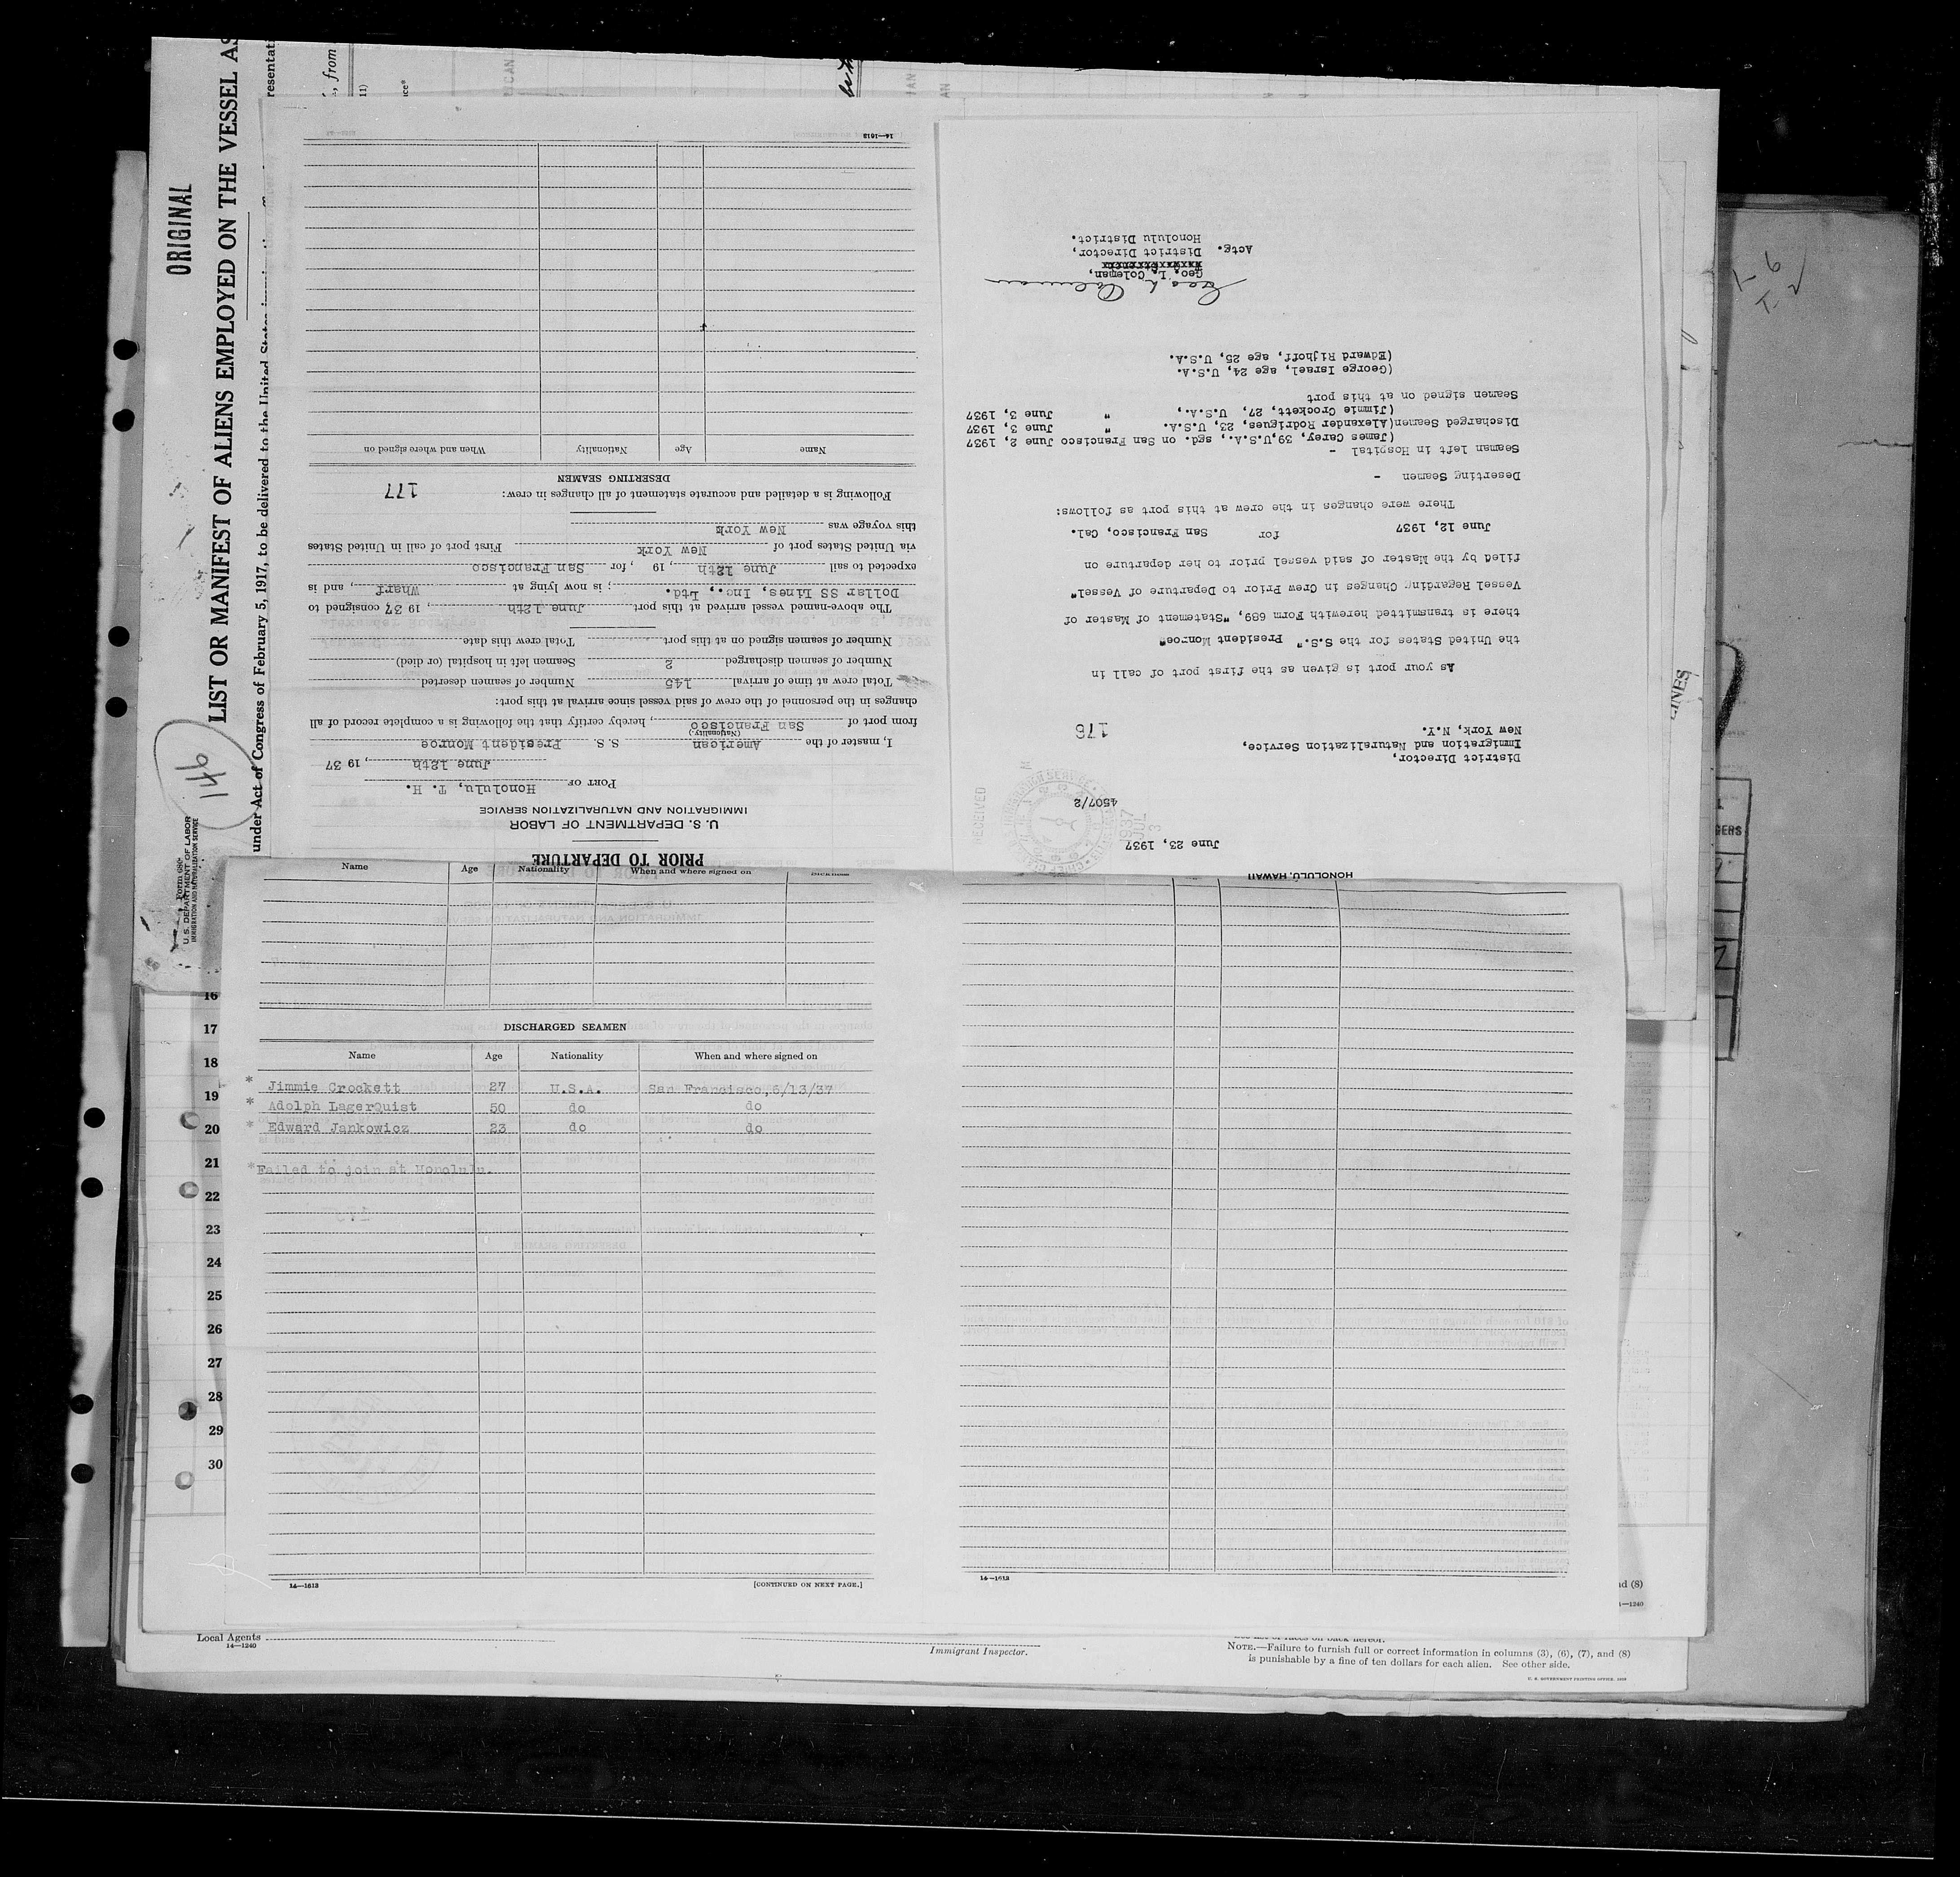 ORIGINAL
LIST OR MANIFEST OF ALIENS EMPLOYED ON THE VESSEL AS
under Act of Congress of February 5, 1917, to be delivered to the United States
, from
146
U. S. DEPARTMENT OF LABOR
IMMIGRATION AND NATURALIZATION SERVICE
PRIOR TO DEPARTURE
U. S. DEPARTMENT OF LABOR
IMMIGRATION AND NATURALIZATION SERVICE
PORT OF Honolulu, T. H.
June 12th, 19 37
I, master of the American S. S. President Monroe
(Nationality)
from port of San Francisco, hereby certify that the following is a complete record of all
changes in the personnel of the crew of said vessel since arrival at this port:
Total crew at time of arrival 145 Number of seamen deserted
Number of seamen discharged 2 Seamen left in hospital (or died)
Number of seamen signed on at this port Total crew this date
The above-named vessel arrived at this port June 12th, 19 37 consigned to
Dollar SS Lines, Inc., Ltd. ; is now lying at Wharf, and is
expected to sail June 12th, 19 , for San Francisco
via United States port of New York First port of call in United States
this voyage was New York
Following is a detailed and accurate statement of all changes in crew: 177
DESERTING SEAMEN
Name Age Nationality When and where signed on
14—1613
HONOLULU, HAWAII
June 23, 1937
4507/2
RECEIVED
1937 JUL 3
District Director,
Immigration and Naturalization Service,
New York, N.Y.
176
As your port is given as the first port of call in
the United States for the S.S." President Monroe"
there is transmitted herewith Form 689, "Statement of Master of
Vessel Regarding Changes in Crew Prior to Departure of Vessel"
filed by the Master of said vessel prior to her departure on
June 12, 1937 for San Francisco, Cal.
There were changes in the crew at this port as follows:
Deserting Seamen -
Seaman left in Hospital -
(James Carey, 39,U.S.A., sgd. on San Francisco June 2, 1937
Discharged Seamen(Alexander Rodrigues, 23, U.S.A. " June 3, 1937
(Jimmie Crockett, 27, U.S.A., " June 3, 1937
Seamen signed on at this port
(George Israel, age 24, U.S.A.
(Edward Rijhoff, age 25, U.S.A.
Geo L Coleman
Geo. L. Coleman,
Actg. District Director,
Honolulu District.
Name Age Nationality When and where signed on Sickness
DISCHARGED SEAMEN
Name Age Nationality When and where signed on
* Jimmie Crockett 27 U.S.A. San Francisco,6/13/37
* Adolph LagerQuist 50 do do
* Edward Jankowicz 23 do do
*Failed to join at Honolulu.
14—1613 [CONTINUED ON NEXT PAGE.]
14—1613
16
17
18
19
20
21
22
23
24
25
26
27
28
29
30
LINES
GERS
nd (8)
14—1240
Local Agents
14—1240
Immigrant Inspector.
NOTE.—Failure to furnish full or correct information in columns (3), (6), (7), and (8)
is punishable by a fine of ten dollars for each alien. See other side.
U. S. GOVERNMENT PRINTING OFFICE